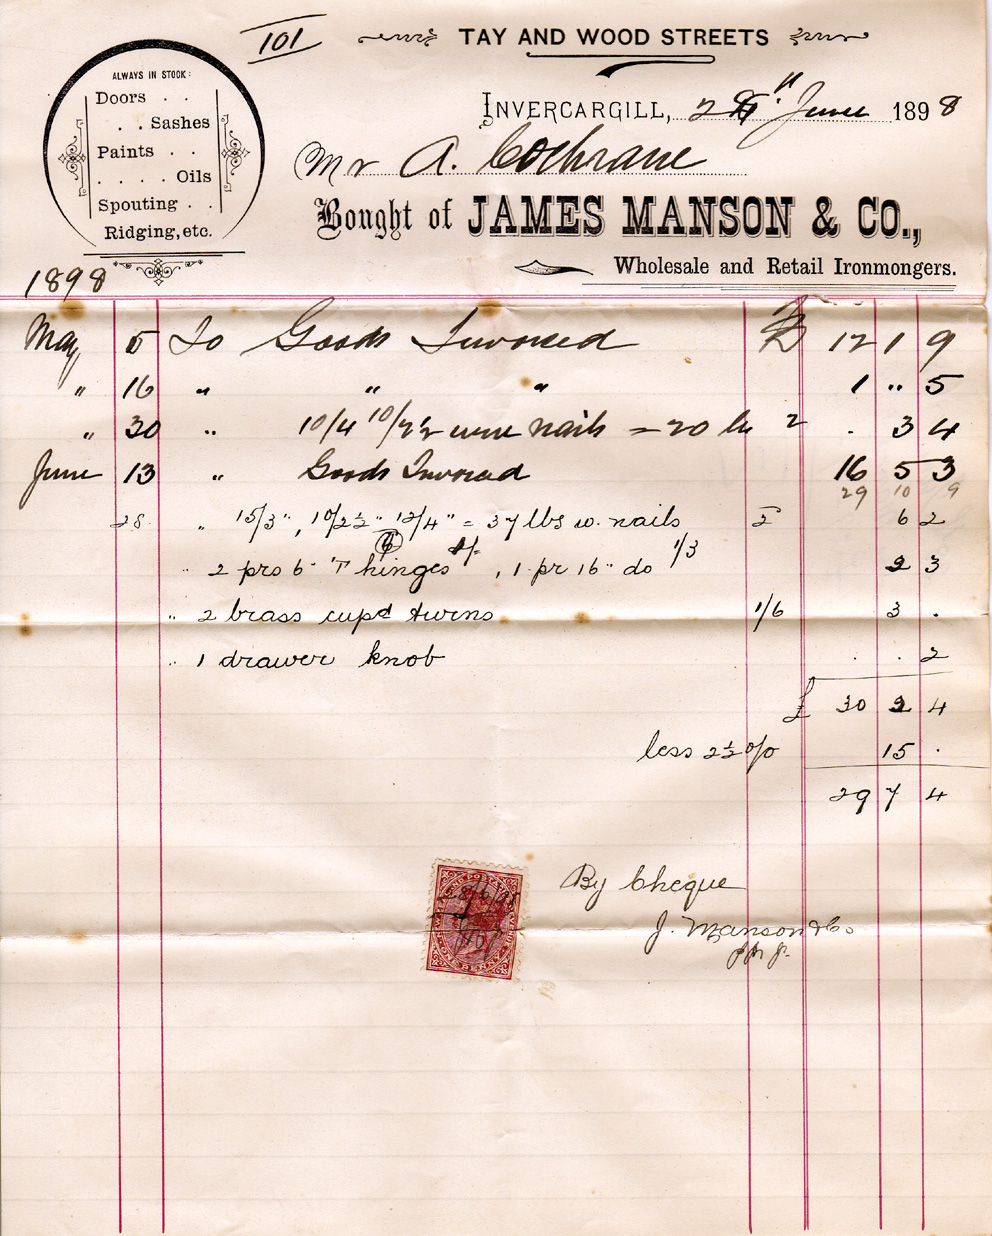 101
TAY AND WOOD STREETS
ALWAYS IN STOCK:
Doors . .
. . Sashes
Paints . .
. . . . Oils
Spouting . .
Ridging, etc.
INVERCARGILL, 28" June 1898
Mr A. Cochrane
Bought of JAMES MANSON & CO.,
Wholesale and Retail Ironmongers.
1898
May 5 To Goods Invoiced £ 12 1 9
" 16 " " " 1 " 5
" 30 " 10/4 10/2½ wire nails = 20 lbs 2 . 3 4
June 13 " Goods Invoiced 16 5 3
29 10 9
28 " 15/3", 10/2½" 12/4" = 37 lbs w. nails 2 6 2
" 2 prs 6" T hinges , 1 pr 16" do 1/3 2 3
" 2 brass cupd turns 1/6 3 .
" 1 drawer knob . . 2
£ 30 2 4
less 2½ o/o 15 .
29 7 4
By Cheque
J. Manson & Co
28/6/98
ONE PENNY